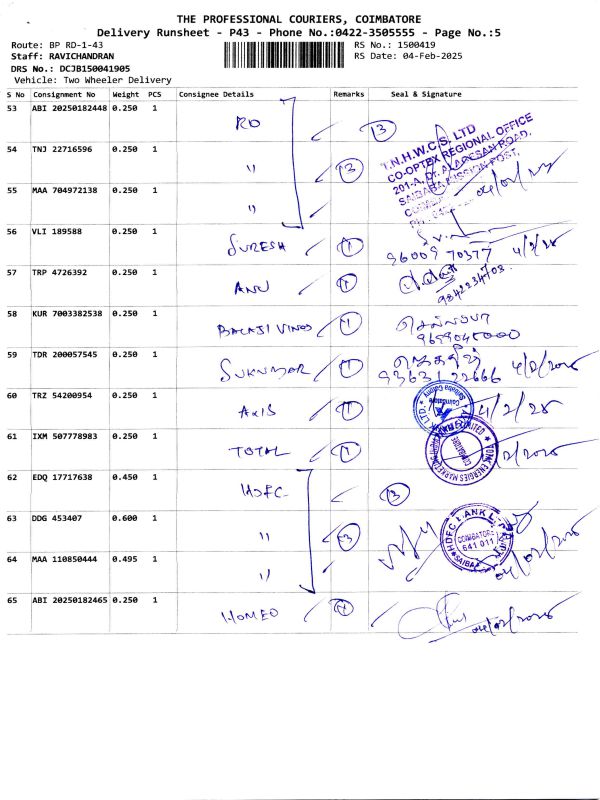 THE PROFESSIONAL COURIERS, COIMBATORE
Delivery Runsheet - P43 - Phone No.:0422-3505555 - Page No.:5
Route: BP RD-1-43 RS No.: 1500419
Staff: RAVICHANDRAN RS Date: 04-Feb-2025
DRS No.: DCJB150041905
Vehicle: Two Wheeler Delivery
S No Consignment No Weight PCS Consignee Details Remarks Seal & Signature
53 ABI 20250182448 0.250 1 RO 3
T.N.H.W.C.S. LTD
CO-OPTEX REGIONAL OFFICE
201-A, Dr. ALAGESAN ROAD,
SAIBABA MISSION POST,
54 TNJ 22716596 0.250 1 " 3
55 MAA 704972138 0.250 1 "
56 VLI 189588 0.250 1 SURESH 1 96009 70377 4/2/25
57 TRP 4726392 0.250 1 ANU 1 9842234708
58 KUR 7003382538 0.250 1 BALAJI VINOD 1 செல்லப்பா
9699045000
59 TDR 200057545 0.250 1 SUKUMAR 1 93631 22666 4/2/2025
60 TRZ 54200954 0.250 1 AXIS 1 4/2/25
61 IXM 507778983 0.250 1 TOTAL 1
62 EDQ 17717638 0.450 1 HDFC 3
63 DDG 453407 0.600 1 " 3
HDFC BANK
COIMBATORE
641 011
SAIBABA
04/02/2025
64 MAA 110850444 0.495 1 "
65 ABI 20250182465 0.250 1 HOMEO 1 04/02/2025